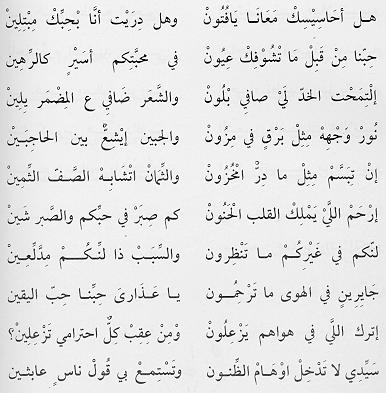 هـل أحَاسِيْسِكْ مَعَانَـا يَا فْتُونْ وهـل دِرَيْت أنَّـا بْحِبِّكْ مِبْتِلِينْ
حِبِّنا مِنْ قَبِلْ مَا تْشُوْفِكْ عِيُونْ في محبَّتِكم أسَيْـرٍ كالرِّهِينْ
إلْتِمَحْت الخدّ لَيْ صافي بْلُونْ والشَّعَر ضَافي ع المِضْمَر يلِينْ
نُورْ وَجْهِهْ مِثِلْ بَرْقٍ في مِزُونْ والجبين إيْشِعّ بين الحاجبَـينْ
إنْ تِبَسَّمْ مِثِلْ ما دِرٍّ امْخُزُونْ والثِّمَانْ اتْشَابِـهْ الصَّفّ الثِّمِينْ
إرْحَمْ اللَّيْ يَمْلِكْ القلب الحَنُونْ كم صِبَرْ في حبِّكم والصَّبر شَينْ
لنِّكم في غَيْرِكُمْ ما تنْظِرون والسِّبَبْ ذا لنِّـكُـمْ مِدَّلّعِـينْ
جَايِرِينٍ في الهوى ما تَرْحِمُـون يـا عَـذَارىَ حِبِّنـا حِبّ اليقين
إترك اللَّي في هواهم يَزْعلُونْ ومْنِ عِقِبْ كِلّ احترامي تَزْعِلِينْ؟
سَيِّدي لا تَدْخِلْ اوْهَامْ الظِّنـون وتَسْتِمـعْ بي قُولْ ناسٍ عابثـين